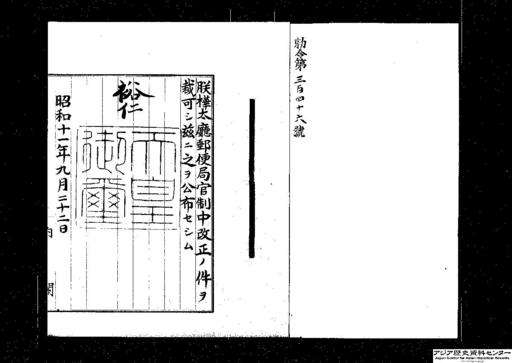 勅令第三百四十六號
朕樺太廳郵便局官制中改正ノ件ヲ
裁可シ玆ニ之ヲ公布セシム
裕仁
天皇御璽
昭和十一年九月二十二日
内閣
アジア歴史資料センター
Japan Center for Asian Historical Records